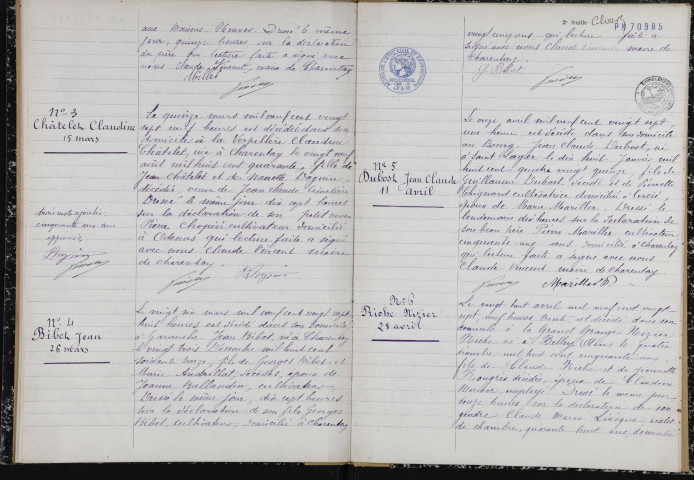 aux Maisons-Neuves. Dressé le même
jour, quinze heures, sur la déclaration
du père qui lecture faite a signé avec
nous Claude Vincent, maire de Charentay
N° 3
Châtelet Claudine
15 mars
Le quinze mars mil neuf cent vingt
sept neuf heures est décédée dans son
domicile à la Verpillère Claudine
Châtelet, née à Charentay le vingt neuf
avril mil huit cent quarante, fille de
Jean Châtelet et de Nanette Daguin
décédés, veuve de Jean claude
Dressé le même jour, dix sept heures
sur la déclaration de son petit neveu
Pierre cultivateur domicilié
à Odenas qui lecture faite a signé
avec nous Claude Vincent maire
de Charentay
trois mots ajoutés
cinquante un ans
approuvés
N° 4
Bibet Jean
26 mars
Le vingt six mars mil neuf cent vingt sept
huit heures est décédé dans son domicile
à Garanche, Jean Bibet, né à Charentay
le vingt trois Décembre mil huit cent
soixante treize, fils de Georges Bibet et
Marie décédés, époux de
Jeanne Bellandin, cultivateur
Dressé le même jour, dix sept heures
sur la déclaration de son fils Georges
Bibet, cultivateur, domicilié à Charentay
2e feuille
PH70985
vingt cinq ans qui lecture faite a
signé avec nous Claude Vincent maire de
Charentay.
G. Bibet
N° 5
Dubost Jean Claude
11 avril
Le onze avril mil neuf cent vingt sept
une heure, est décédé, dans son domicile
au Bourg, Jean Claude Dubost, né
à Saint Lager le dix huit janvier mil
huit cent quatre vingt quinze, fils de
Guillaume Dubost décédé et de Pierrette
Chignard cultivatrice domiciliée à Cercié
époux de Marie Marillier. Dressé le
lendemain dix heures sur la déclaration de
son beau père Pierre Marillier cultivateur
cinquante cinq ans domicilié à Charentay
qui lecture faite a signé avec nous
Claude Vincent, maire de Charentay.
Marillier P.
N° 6
Riche Nizier
28 avril
Le vingt huit avril mil neuf cent vingt
sept, neuf heures trente, est décédé dans son
domicile à la Grand Grange Nizier
Riche né à Belley (Ain) le quatre
mil huit cent cinquante
fils de Claude Riche et de Jeannette
décédés, époux de Claudine
Mercier employé. Dressé le même jour
douze heures sur la déclaration de son
gendre Claude Marie valet
de chambre, quarante huit ans, domicilié